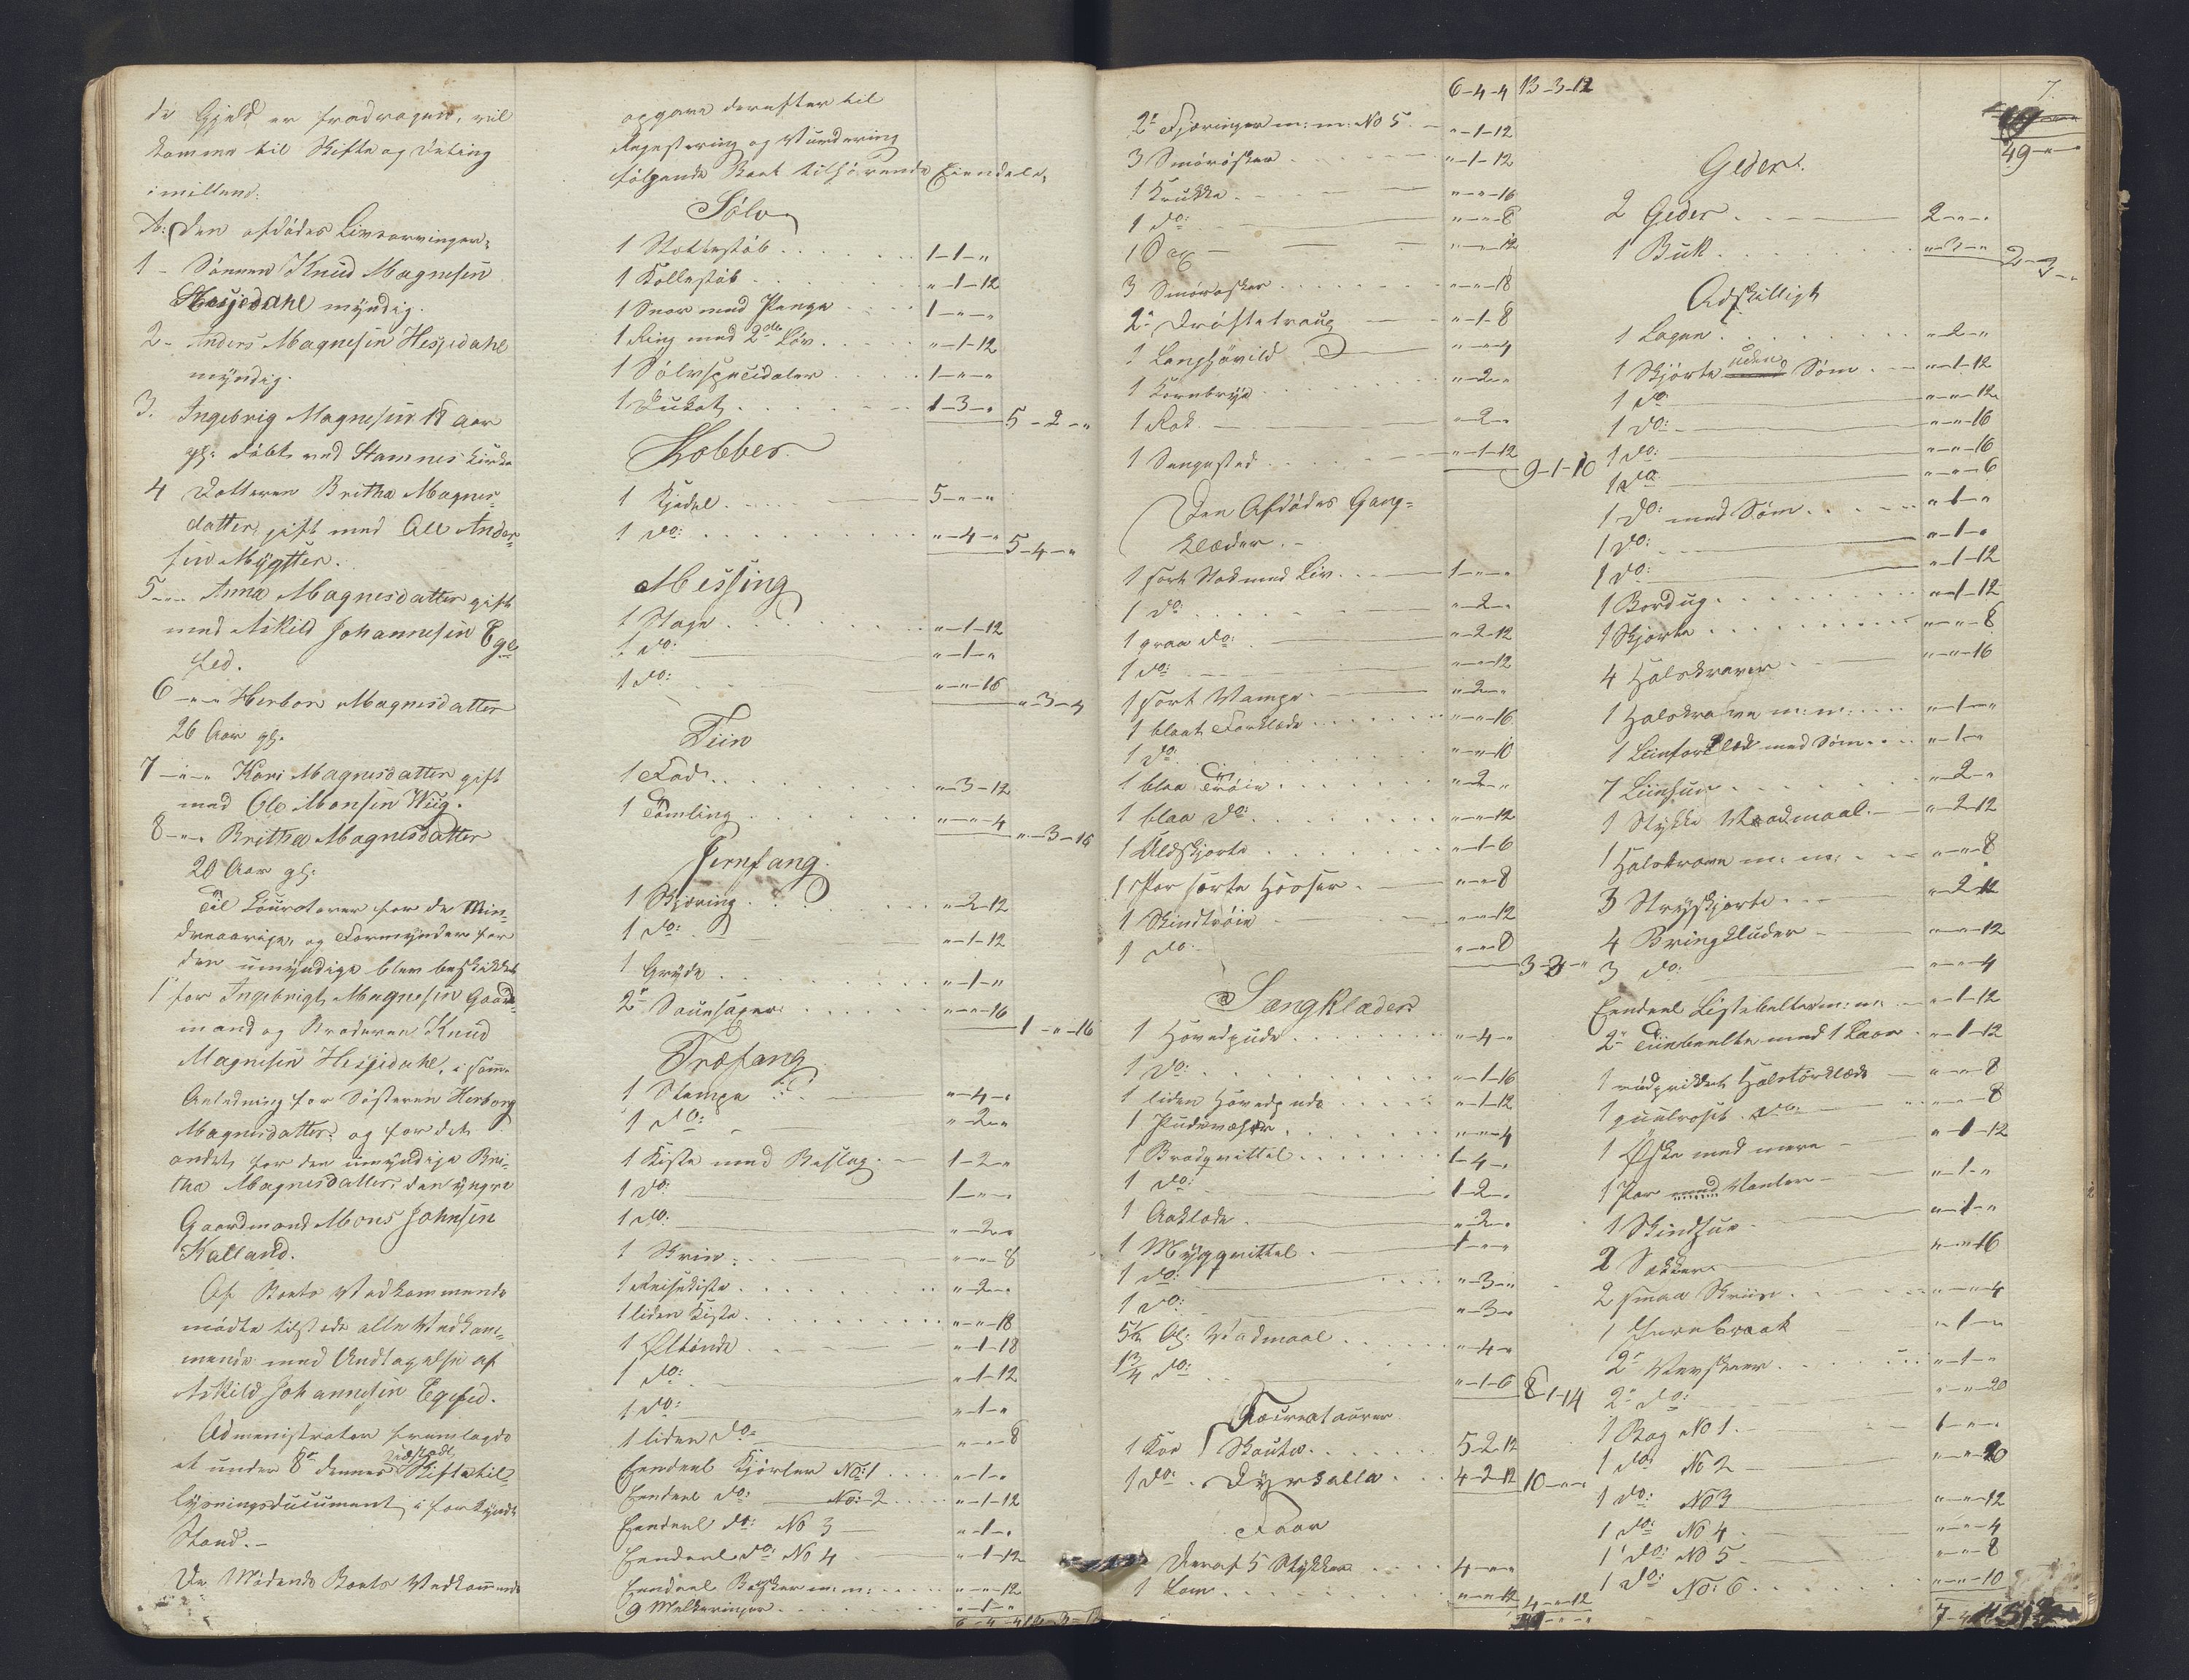 de Gjeld er fradragen, vil
komme til Skifte og Deling
imellem:
A: Den afdødes Livsarvinger:
1 - Sønnen Knud Magnesen
Hesjedahl myndig.
2 - Anders Magnesen Hesjedahl
myndig.
3. Ingebrig Magnesen 18 Aar
gl. døbt ved Stamnes Kirke
4 Datteren Britha Magnes-
datter, gift med Ole Ander-
sen Mygster.
5 -"- Anna Magnesdatter gift
med Askild Johannesen Ege-
sed.
6 -"- Herbor Magnesdatter
26 Aar gl.
7 -"- Kari Magnesdatter gift
med Ole Monsen Wiig.
8 -"- Britha Magnesdatter
20 Aar gl.
Til Couratorer for de Min-
dreaarige, og Formynder for
den umyndige blev beskikket
1 for Ingebrigt Magnesen Gaard-
mand og Broderen Knud
Magnesen Hesjedahl, i samme
Anledning for Søsteren Herborg
Magnesdatter, og for det
andet for den umyndige Bri-
tha Magnesdatter, den yngre
Gaardmand Mons Johnsen
Kalland.
Af Boets Vedkommende
mødte tilstede alle Vedkom-
mende med Undtagelse af
Askild Johannesen Egesed.
Administrator fremlagde
et under 8de dennes udstedt Skiftetil-
lysningsdocument i forkyndt
Stand. -
De Mødende Boets Vedkommende
opgave derefter til
Registering og Vurdering
følgende Boet tilhørende Eiendele,
Sølv
1 Stettestøb 1-1-"
1 Kollestøb "-1-12
1 Snor med Penge 1-"-"
1 Ring med 2de Løv "-1-12
1 Sølvspeciedaler 1-"-"
1 Dukat 1-3-" 5-2-"
Kobber
1 Kjedel 5-"-"
1 do: "-4-" 5-4-"
Messing
1 Stage "-1-12
1 do: "-1-"
1 do: "-"-16 "-3-4
Tiin
1 Fad "-3-12
1 Tømling "-"-4 "-3-16
Jernfang.
1 Bjøring "-2-12
1 do: "-1-12
1 Gryde "-1-"
2de Sauesager "-"-16 1-"-16
Træfang
1 Stampe "-4-"
1 do: "-2-"
1 Kiste med Beslag 1-2-"
1 do: 1-"-"
1 do: "-2-"
1 Skrin "-"-8
1 Reisekiste "-2-"
1 liden Kiste "-"-18
1 Øltønde "-1-18
1 do: "-1-12
1 do: "-1-"
1 liden do: "-"-8
Eendeel Kjørler No: 1 "-1-"
Eendeel do: No: 2 "-1-12
Eendeel do: No 3 "-1-"
Eendeel do: No 4 "-1-12
Eendeel Bøsker m: m: "-"-12
9 Melkeringer "-1-"
6-4-4
6-4-4 13-3-12
2de Fjæringer m: m: No 5. "-1-12
3 Smørøsker "-1-12
1 Krukke "-"-16
1 do: "-"-8
1 Sax "-"-12
3 Smørøsker "-"-18
2de Drøftetraug "-1-8
1 Langhøvild "-"-4
1 Kornbryd "-2-"
1 Rok "-2-"
1 Sengested "-1-12 9-1-10
Den Afdødes Gang-
klæder. -
1 sort Stak med Liv 1-"-"
1 do "-2-"
1 graa do: "-2-12
1 do: "-"-12
1 sort Wampe "-2-"
1 blaat Forklæde "-"-16
1 do: "-"-10
1 blaa Trøie "-2-"
1 blaa do: "-"-12
1 Uldskjorte "-1-6
1 Par sorte Hooser "-"-8
1 Skindtrøie "-"-12
1 do: "-"-8
Sængklæder
1 Hovedpude "-4-"
1 do: "-1-16
1 liden Hovedpude "-1-12
1 Pudevæhr "-"-4
1 Bradqvittel 1-4-"
1 do: 1-2-"
1 Aaklæde "-2-"
1 Myggqvittel 1-"-"
1 do: "-3-"
1 do: "-3-"
5½ Al: Vadmaal "-4-"
1¾ do: "-1-6 8-1-14
Kreaturer
1 Koe Skautu 5-2-12
1 do: Dyrsalla 4-2-12 10-"-"
Faar
Deraf 5 Stykker 4-"-"
1 Lam "-"-12 4-"-12
49-"-"
7.
49-"-"
Geder.
2 Geder 2-"-"
1 Buk "-3-" 2-3-"
Adskilligt
1 Lagen "-2-"
1 Skjorte uden Søm "-1-12
1 do "-"-12
1 do: "-"-16
1 do: "-"-16
1 do "-"-6
1 do: med Søm "-1-"
1 do: "-1-"
1 do: "-1-12
1 Bordug "-1-12
1 Skjorte "-"-8
4 Halskraver "-"-16
1 Halskrave m: m: "-1-"
1 Linforklæde med Søm "-1-"
7 Liinhuer "-2-"
1 Stykke Wadmaal "-2-12
1 Halskrave m: m: "-"-8
3 Stryskjorte "-2-12
4 Bringkluder "-"-12
3 do: "-"-4
Eendeel Listebelter m: m: "-1-12
2de Tiinbeelte med 1 Laas "-1-12
1 rødprikket Halstørklæde "-"-8
1 guulroset do: "-"-8
1 Øske med mere "-1-12
1 Par Vanter "-1-"
1 Skindhue "-1-"
2 Sækker "-"-16
2 smaa Skriin "-"-4
1 Jernbraak "-1-"
2de Væveskeer "-1-"
2de do: "-"-20
1 Bog No 1 1-"-"
1 do: No 2 "-"-20
1 do: No 3 "-"-12
1 do: No 4 "-"-4
1 do: No 5 "-"-8
1 do: No: 6 "-"-10